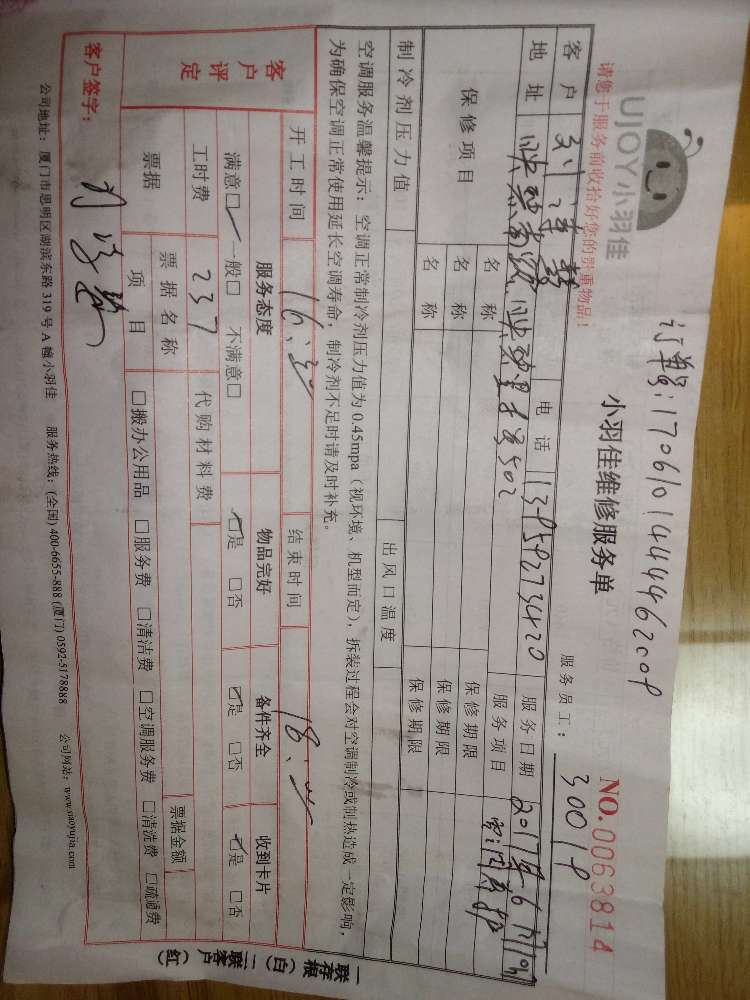 订单号:170610144446200P
UJOY小羽佳
小羽佳维修服务单
NO.0063814
请您于服务前收拾好您的贵重物品!
服务员工:
客户
电话
服务日期 2017年6月
地址
服务项目
保修项目
名称
保修期限
名称
保修期限
名称
保修期限
制冷剂压力值
出风口温度
空调服务温馨提示:空调正常制冷剂压力值为0.45mpa(视环境、机型而定),拆装过程会对空调制冷或制热造成一定影响,
为确保空调正常使用延长空调寿命,制冷剂不足时请及时补充。
开工时间
结束时间
客户评定
服务态度
物品完好
备件齐全
收到卡片
满意☑ 一般□ 不满意□
☑是 □否
☑是 □否
☑是 □否
工时费 237
代购材料费
票据
票据名称
票据金额
项目
□搬办公用品 □服务费 □清洁费 □空调服务费 □清洗费 □疏通费
客户签字:
公司地址:厦门市思明区湖滨东路319号A幢小羽佳 服务热线:(全国)400-6655-888 (厦门)0592-5178888 公司网站:www.xiaoyujia.com
一联存根(白)二联客户(红)